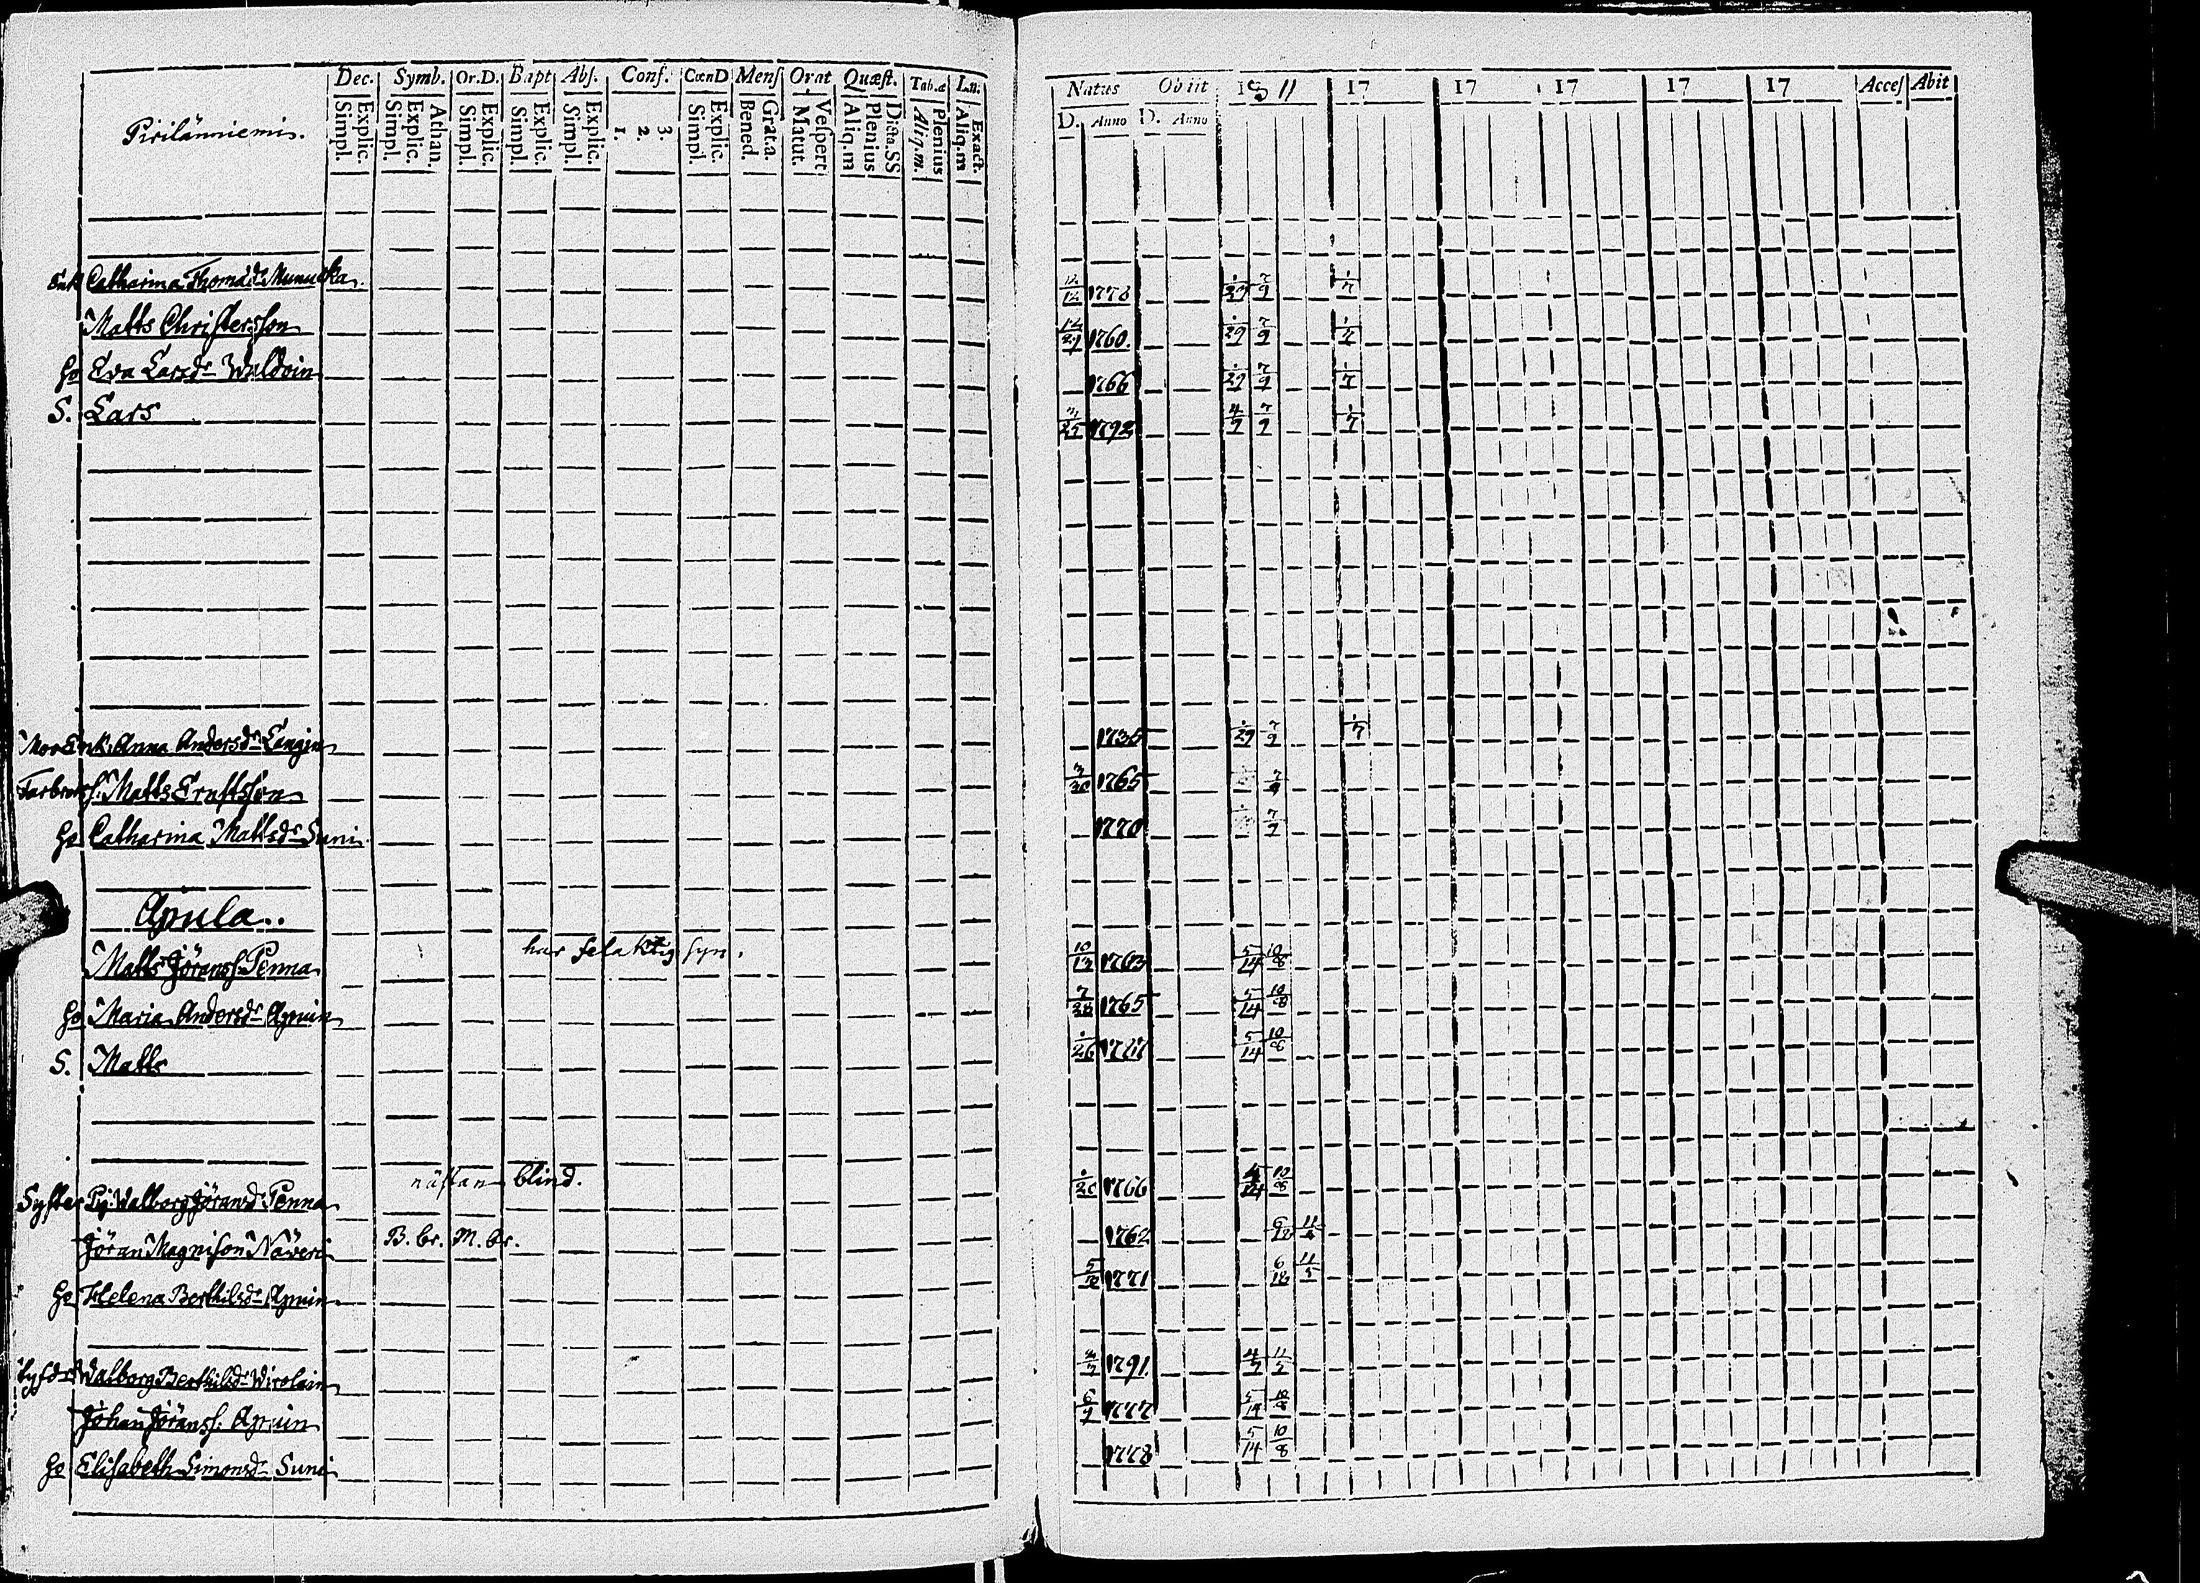 Dec. Symb. Or.D. Bapt Abs. Conf. CœnD Mens Orat Quæst. Tab.æ L.n.
Pirilänniemi.
Explic. Simpl. Athan. Explic. Simpl. Explic. Simpl. Explic. Simpl. Explic. Simpl. 3. 2. 1. Explic. Simpl. Grat.a. Bened. Vespert Matut. Dicta.SS Plenius Aliq.m Plenius Aliq.m. Exact. Aliq.m
Enk Catharina Thomasd:r Munukka
Matts Christersson
Hu Eva Larsd:r Waldoin
S. Lars
Mor Enk. Anna Andersd:r Laugin
Farbrors S. Matts Ernstsson
Hu Catharina Mattsd:r Suni
Apula..
har felaktig syn.
Matts Jöranss. Penna
Hu Maria Andersd:r Apuin
S. Matts
nästan blind.
Syster Pig. Walborg Jöransd: Penna
Jöran Magnison Näveri B. br. M. br.
Hu Helena Berthilsd:r Apuin
Walborg Berthilsd:r Wirolain
Johan Jöranss. Apuin
Hu Elisabeth Simonsd:r Suni
Natus Obiit 1811 17 17 17 17 17 Access Abit
D. Anno D. Anno
12/12 1778 1/29 7/9 1/7
12/21 1760. 1/29 7/9 1/7
1766 1/29 7/9 1/7
1792 4/9 7/9 1/7
1735 1/29 7/9 1/7
3/30 1765 7/9
1770 7/9
10/13 1763 5/14 10/8
7/28 1765 5/14 10/8
1/26 1787 5/14 10/8
1766 10/8
1762 6/18 11
1771 6/18 11/5
1791.
6/9 1777 5/14 10/8
1778 5/14 10/8